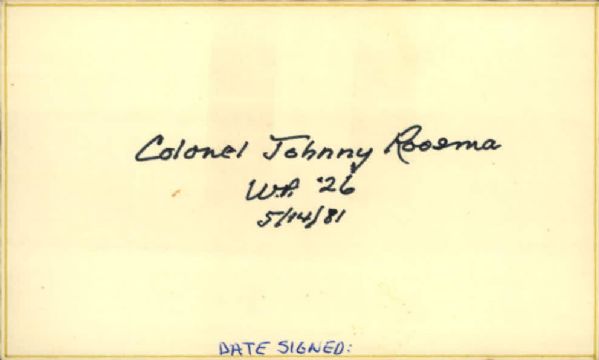 Colonel Johnny Roosma
W.P. '26
5/14/81
DATE SIGNED: